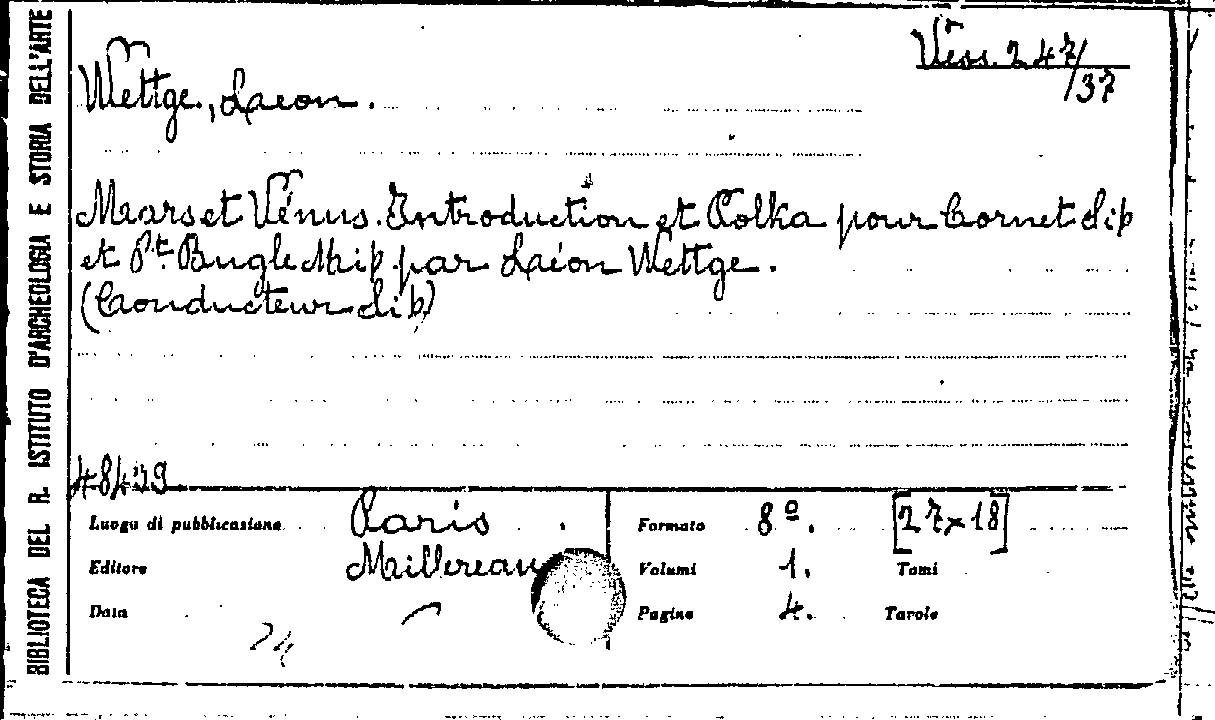 BIBLIOTECA DEL R. ISTITUTO D'ARCHEOLOGIA E STORIA DELL'ARTE
Vess. 247/37
Wettge, Léon.
Mars et Vénus. Introduction et Polka pour Cornet sib
et Pt. Bugle Mib par Léon Wettge.
(Conducteur sib)
48439
Luogo di pubblicazione Paris
Editore Millereau
Data
Formato 8º. [27x18]
Volumi 1. Tomi
Pagine 4. Tavole